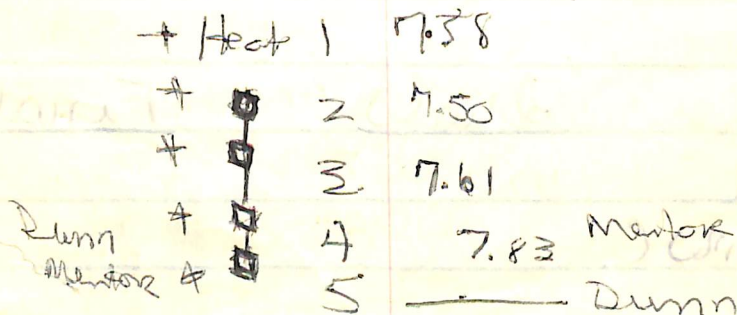 + Heat 1 7.38
+ 2 7.50
+ 3 7.61
Dunn + 4 7.83 Mentor
Mentor + 5 —— Dunn